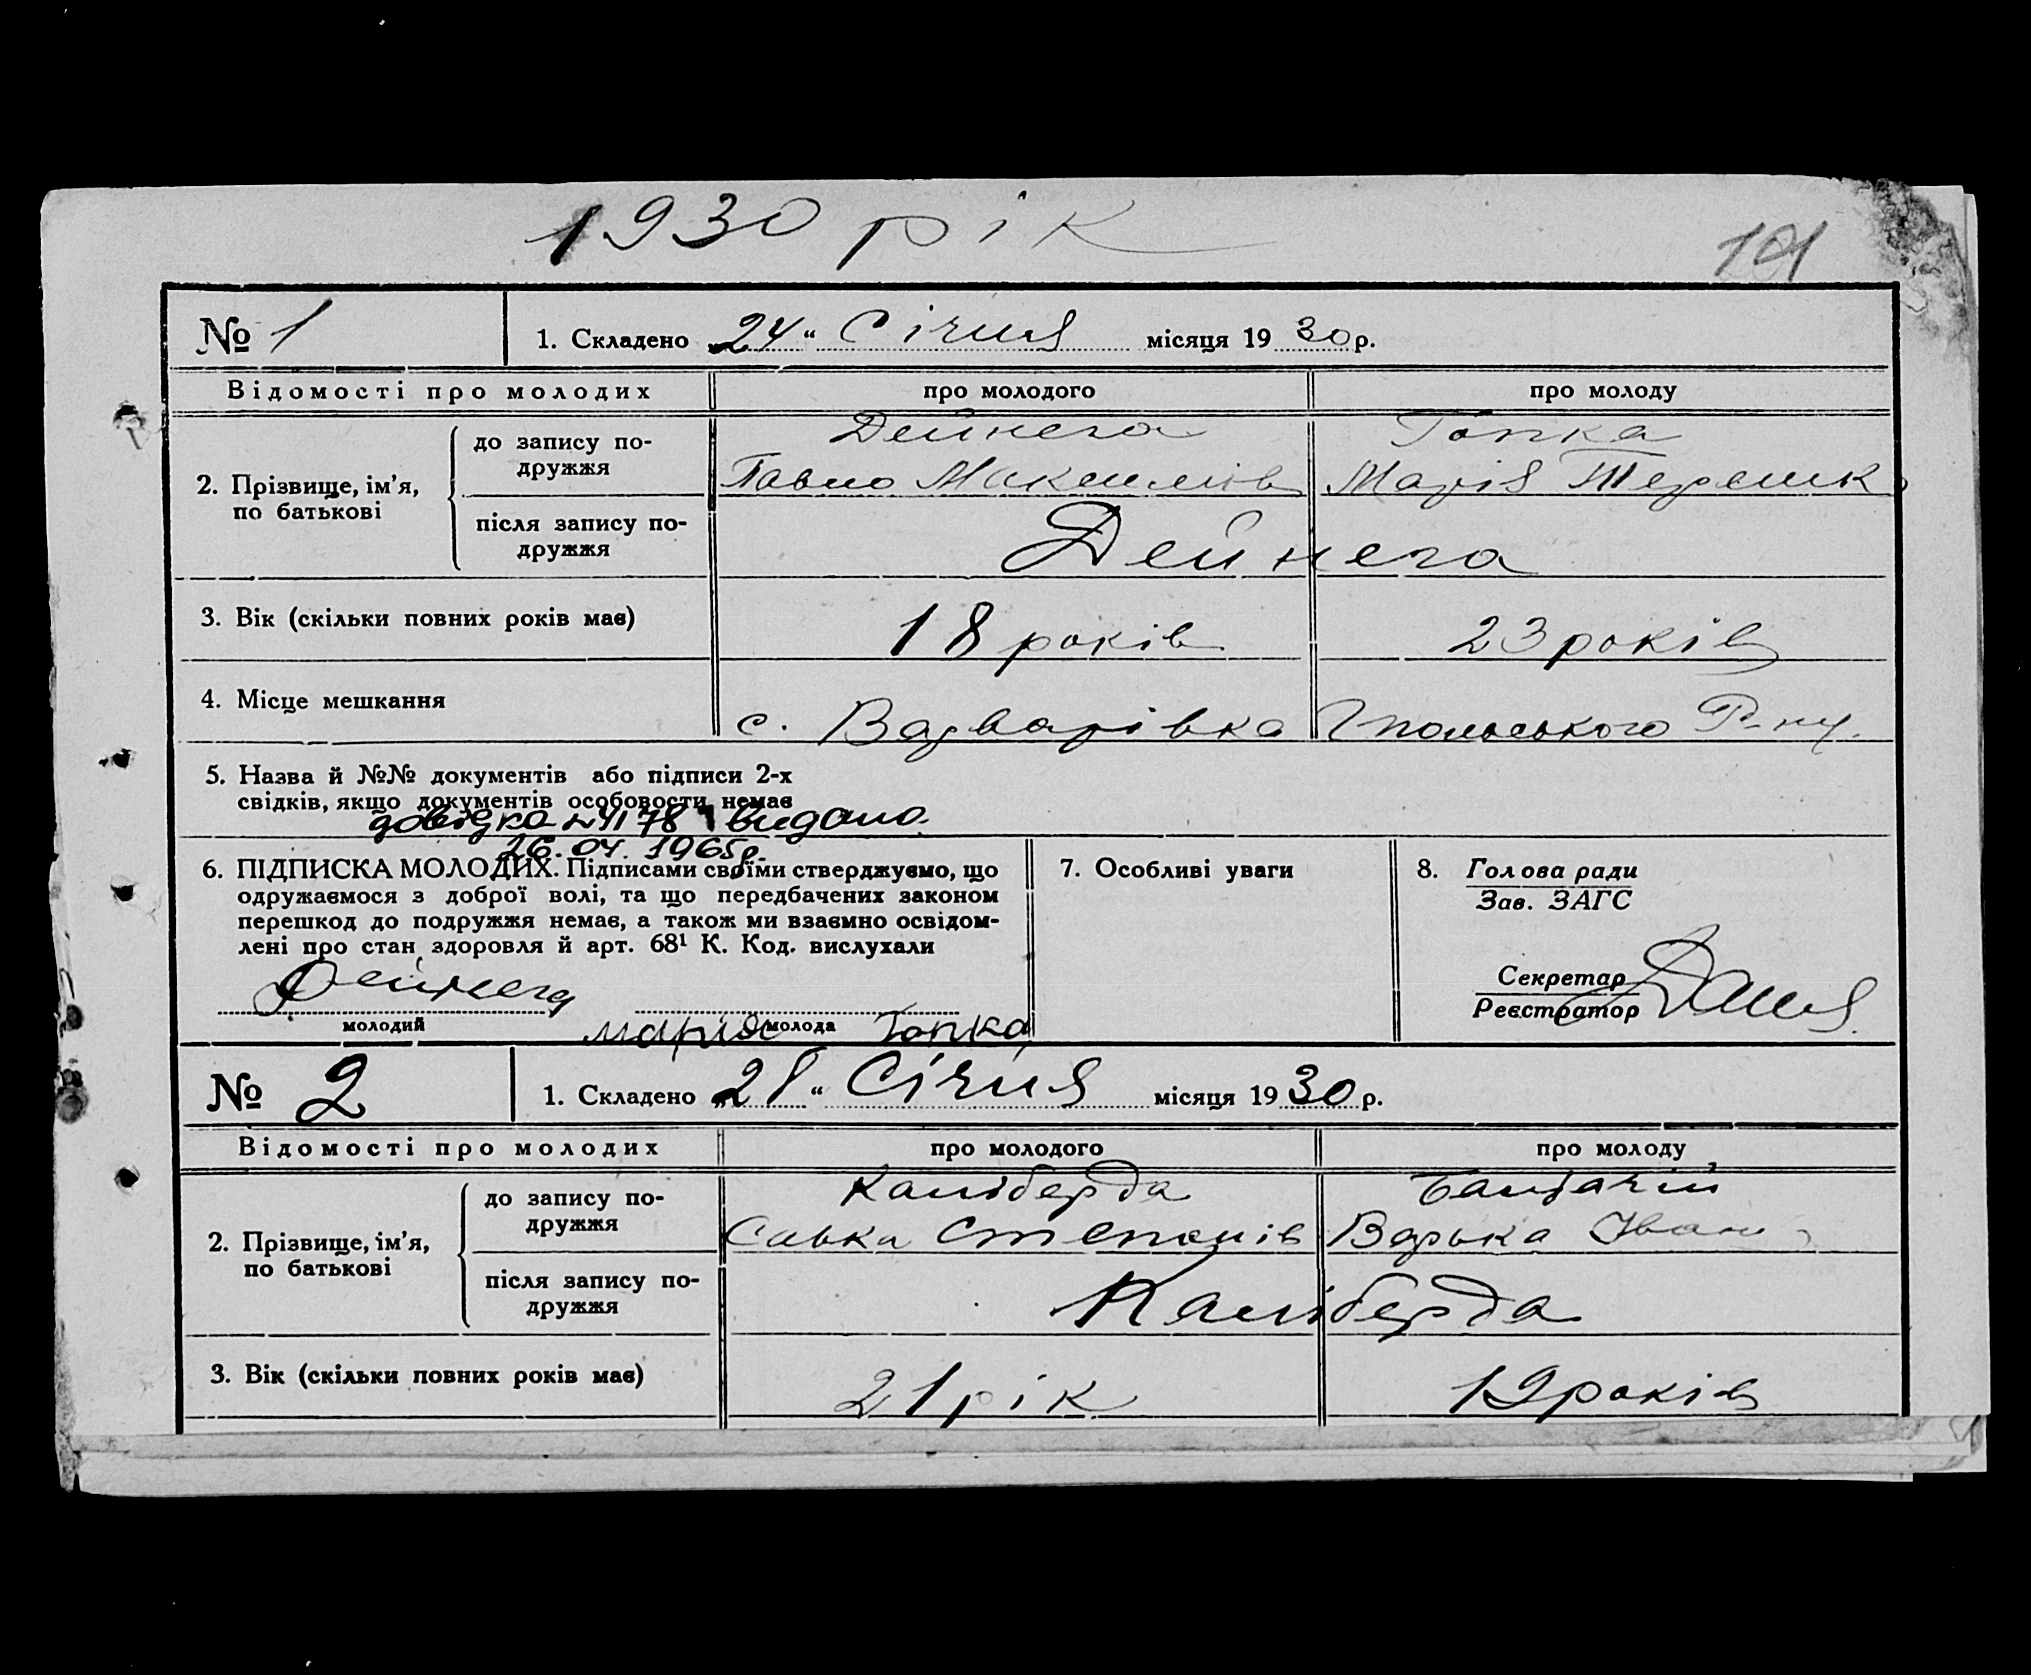 1930 рік
191
№ 1
1. Складено „24“ Січня місяця 1930р.
Відомості про молодих
про молодого
про молоду
2. Прізвище, ім’я,
по батькові
до запису по-
дружжя
Дейнега
Павло Максимів
Гопка
Марія Терешк
після запису по-
дружжя
Дейнега
3. Вік (скільки повних років має)
18 років
23 років
4. Місце мешкання
с. Варварівка
Р-ну.
5. Назва й №№ документів або підписи 2-х
свідків, якщо документів особовости немає
довідка видано
26.04.1965р.
6. ПІДПИСКА МОЛОДИХ. Підписами своїми стверджуємо, що
одружаємося з доброї волі, та що передбачених законом
перешкод до подружжя немає, а також ми взаємно освідом-
лені про стан здоровля й арт. 68¹ К. Код. вислухали
Дейнега
молодий
молода
Марія Гопка
7. Особливі уваги
8. Голова ради
Зав. ЗАГС
Секретар
Реєстратор
№ 2
1. Складено „28“ Січня місяця 1930р.
Відомості про молодих
про молодого
про молоду
2. Прізвище, ім’я,
по батькові
до запису по-
дружжя
Каліберда
Савка Степанів
Варька Іван
після запису по-
дружжя
Каліберда
3. Вік (скільки повних років має)
21 рік
19 років